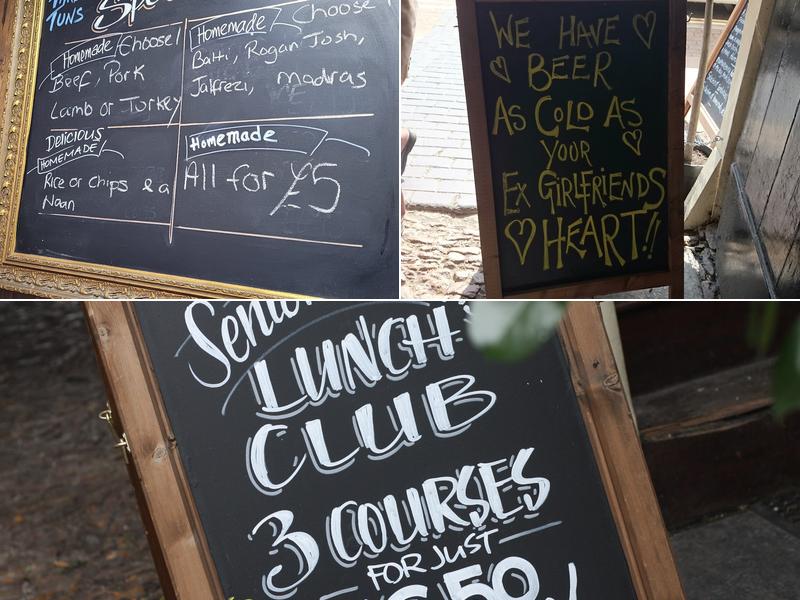 TUNS
Homemade Choose
Beef, Pork
Lamb or Torkey
Homemade Choose
Balti, Rogan Josh,
Jalfrezi, madras
DELICIOUS
HOMEMADE
Rice or Chips & a
Naan
Homemade
All for £5
WE HAVE
BEER
AS COLD AS
YOUR
EX GIRLFRIENDS
HEART!!
LUNCH
CLUB
3 COURSES
FOR JUST